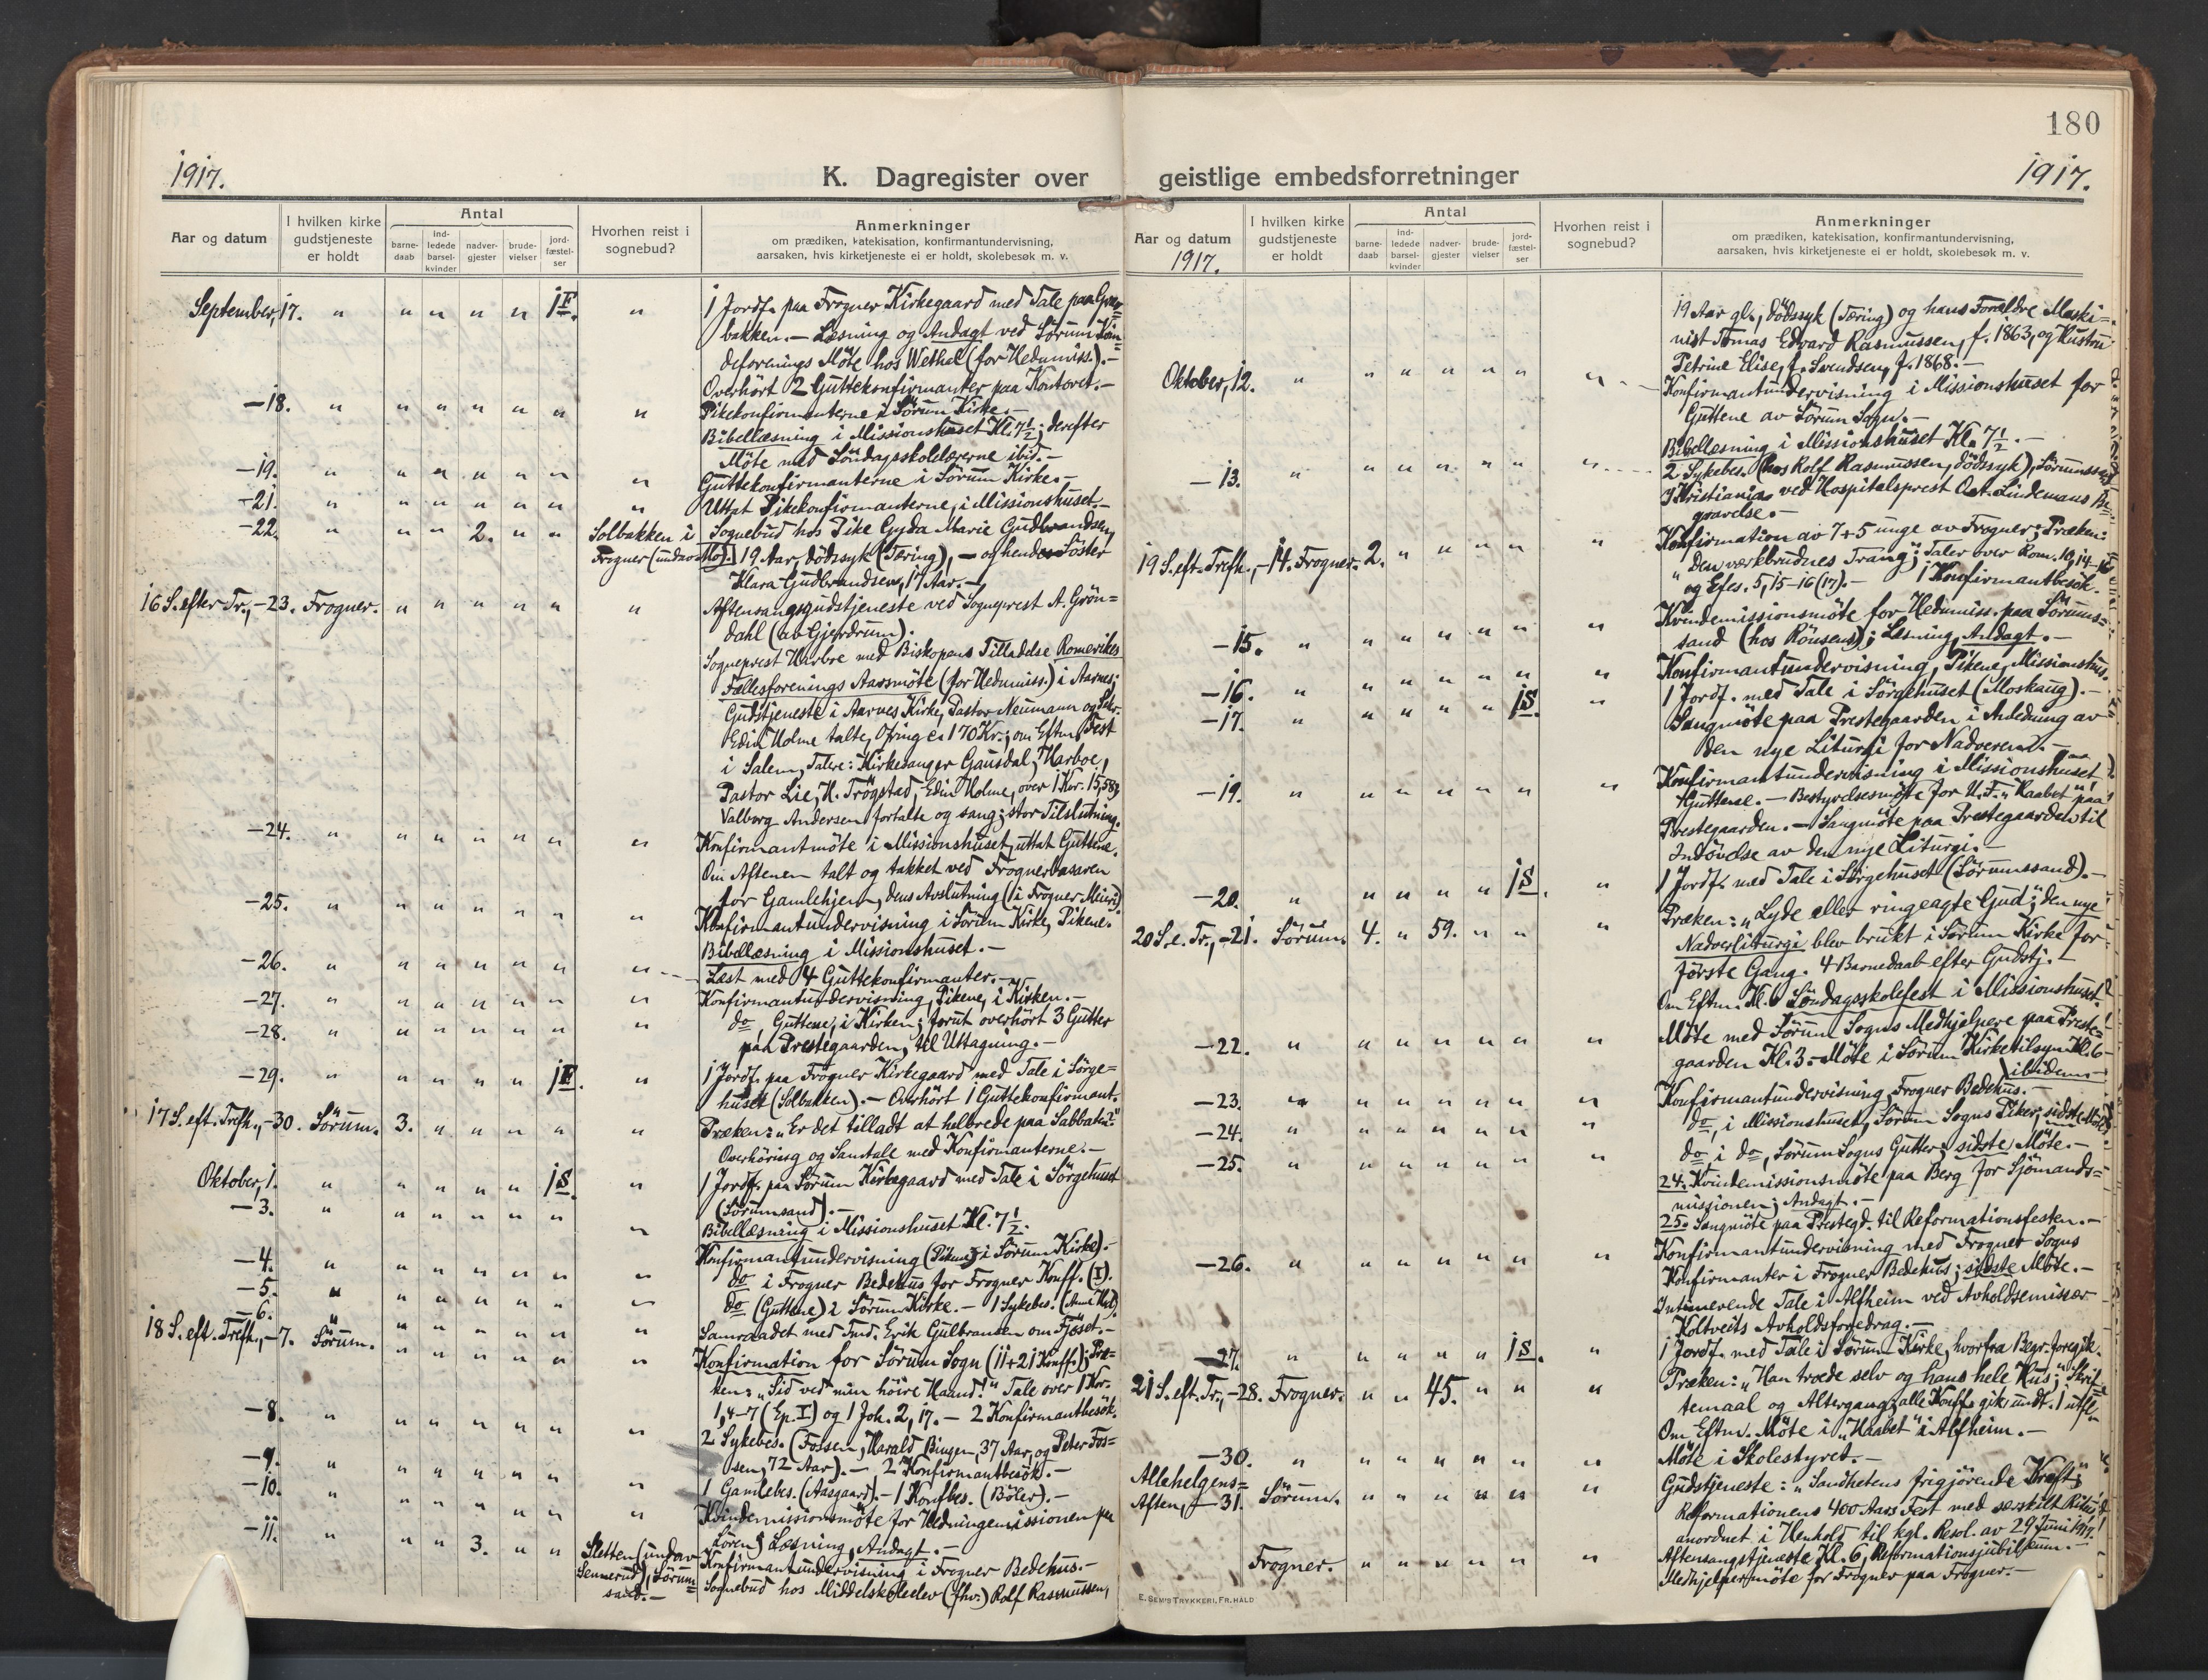 180
1917.
K. Dagregister over
geistlige embedsforretninger
1917.
Aar og datum
I hvilken kirke gudstjeneste er holdt
Antal
barne-daab
ind-ledede barsel-kvinder
nadver-gjester
brude-vielser
jord-fæstel-ser
Hvorhen reist i sognebud?
Anmerkninger
om prædiken, katekisation, konfirmantundervisning,
aarsaken, hvis kirketjeneste ei er holdt, skolebesøk m. v.
September, 17. " " " " " 1F. " 1 Jordf. paa Frogner Kirkegaard med Tale paa
bakken. – Læsning og Andagt ved Sörum
deforenings Möte hos Wethal (for Hedmiss.). –
Overhört 2 Guttekonfirmanter paa Kontoret. –
–18. " " " " " " " Pikekonfirmanterne i Sörum Kirke. –
Bibellæsning i Missionshuset Kl. 7½; derefter
Möte med Söndagsskolelærerne ibid. –
–19. " " " " " " " Guttekonfirmanterne i Sörum Kirke. –
–21. " " " " " " " Uttat Pikekonfirmanterne, i Missionshuset. –
–22. " " " 2. " " Solbakken i Sognebud hos Pike Gyda Marie Gudbrandsen,
Frogner 19 Aar, dödssyk (Tæring), – og hendes Söster
Klara Gudbrandsen, 17 Aar. –
16 S. efter Tr., –23. Frogner. " " " " " " Aftensangsgudstjeneste ved Sogneprest A. Grön=
dahl (av Gjerdrum).
Sogneprest Harboe med Biskopens Tilladelse Romerikes
Fællesforenings Aarsmöte (for Hedmiss.) i Aarnes;
Gudstjeneste i Aarnes Kirke, Pastor Neumann og Sekr.
Edin Holme talte, Ofring ca 170 Kr.; om Eftm. Fest
i Salem, Talere: Kirkesanger Gausdal, Harboe,
Pastor Lie, H. Trögstad, Edin Holme, over 1 Kor. 15,58;
Valborg Andersen fortalte og sang; stor Tilslutning.
–24. " " " " " " " Konfirmantmöte i Missionshuset, uttat Guttene.
Om Aftenen talt og takket ved Frognerbasaren
for Gamlehjem, dens Avslutning (i Frogner Meieri).
–25. " " " " " " " Konfirmantundervisning i Sörum Kirke, Pikene.
Bibellæsning i Missionshuset. –
–26. " " " " " " " Læst med 4 Guttekonfirmanter. –
–27. " " " " " " " Konfirmantundervisning, Pikene, i Kirken. –
–28. " " " " " " " do, Guttene, i Kirken; forut overhört 3 Gutter
paa Prestegaarden, til Uttagning. –
–29. " " " " " 1F. " 1 Jordf. paa Frogner Kirkegaard med Tale i Sörge=
huset (Solbakken). – Overhört 1 Guttekonfirmant.
17 S. eft. Trefh., –30. Sörum. 3. " " " " " Præken: "Er det tilladt at helbrede paa Sabbaten?"
Overhöring og Samtale med Konfirmanterne. –
Oktober, 1. " " " " " 1S. " 1 Jordf. paa Sörum Kirkegaard med Tale i Sörgehuset
(Sörumsand). –
–3. " " " " " " " Bibellæsning i Missionshuset Kl. 7½.
–4. " " " " " " " Konfirmantundervisning (Pikene) i Sörum Kirke). –
do i Frogner Bedehus for Frogner Konff. (I).
–5. " " " " " " " do (Guttene) i Sörum Kirke. – 1 Sykebes.
–6. " " " " " " " Samraadet med Fmd. Erik Gulbransen om Fjöset. –
18 S. eft. Trefh., –7. Sörum. " " " " " " Konfirmation for Sörum Sogn (11+21 Konff.); Præ=
ken: "Sid ved min höire Haand!" Tale over 1 Kor.
1,4–7 (Ep. I) og 1 Joh. 2,17. – 2 Konfirmantbesök.
–8. " " " " " " " 2 Sykebes. (Fossen, Harald Bingen, 37 Aar, og Peter Fos=
sen, 72 Aar). – 2 Konfirmantbesök. –
–9. " " " " " " " 1 Gamlebes. (Aasgaard). – 1 Konfbes. (Böler). –
–10. " " " " " " " Kvindemissionsmöte for Hedningemissionen paa
Sören; Læsning, Andagt. –
–11. " " " 3. " " Sletten (under Konfirmantundervisning i Frogner Bedehus. –
Sennerud), Sörum= Sognebud hos Middelskoleelev (fhv.) Rolf Rasmussen,
sand. –
Aar og datum
1917.
I hvilken kirke gudstjeneste er holdt
Antal
barne-daab
ind-ledede barsel-kvinder
nadver-gjester
brude-vielser
jord-fæstel-ser
Hvorhen reist i sognebud?
Anmerkninger
om prædiken, katekisation, konfirmantundervisning,
aarsaken, hvis kirketjeneste ei er holdt, skolebesøk m. v.
19 Aar gl., dödssyk (Tæring) og hans Forældre Maski=
nist Tomas Edvard Rasmussen, f. 1863, og Hustru
Petrine Elise, f. Svendsen, f. 1868. –
Oktober, 12. " " " " " " " Konfirmantundervisning i Missionshuset for
Guttene av Sörum Sogn. –
Bibellæsning i Missionshuset Kl. 7½. –
–13. " " " " " " " 2 Sykebes. (hos Rolf Rasmussen, dödssyk), Sörumssand
I Kristiania ved Hospitalsprest O. Lindemans Be=
gravelse. –
19 S. eft. Trefh., –14. Frogner. 2. " " " " " Konfirmation av 7+5 unge av Frogner; Præken:
"Den værkbrudnes Trang"; Taler over Rom. 10,14–16
og Efes. 5,15–16 (17). – 1 Konfirmantbesök.
–15. " " " " " " " Kvindemissionsmöte for Hedmiss. paa Sörums=
sand (hos Rönsens); Læsning, Andagt. –
–16. " " " " " " " Konfirmantundervisning, Pikene, Missionshus.
–17. " " " " " 1S. " 1 Jordf. med Tale i Sörgehuset (Moskaug). –
Sangmöte paa Prestegaarden i Anledning av
den nye Liturgi for Nadveren. –
–19. " " " " " " " Konfirmantundervisning i Missionshuset,
Guttene. – Bestyrelsesmöte for U. F. "Haabet" paa
Prestegaarden. – Sangmöte paa Prestegaarden til
Indövelse av den nye Liturgi. –
–20. " " " " " 1S. " 1 Jordf. med Tale i Sörgehuset (Sörumssand). –
20 S. e. Tr., –21. Sörum. 4. " 59. " " " Præken: "Lyde eller ringeagte Gud"; den nye
Nadverliturgi blev brukt i Sörum Kirke for
förste Gang. 4 Barnedaab efter Gudstj. –
Om Eftm. Kl. 6 Söndagsskolefest i Missionshuset.
–22. " " " " " " " Möte med Sörum Sogns Medhjelpere paa Preste=
gaarden Kl. 3. – Möte i Sörum Kirketilsyn Kl. 6
ibidem. –
–23. " " " " " " " Konfirmantundervisning, Frogner Bedehus. –
–24. " " " " " " " do, i Missionshuset, Sörum Sogns Piker; sidste Möte
–25. " " " " " " " do i do, Sörum Sogns Gutter; sidste Möte. –
24. Kvindemissionsmöte paa Berg for Sjömands=
missionen; Andagt. –
25. Sangmöte paa Prestegd. til Reformationsfesten. –
–26. " " " " " " " Konfirmantundervisning med Frogner Sogns
Konfirmanter i Frogner Bedehus; sidste Möte. –
Intimerende Tale i Alfheim ved Avholdsemissær
Koltveits Avholdsforedrag. –
–27. " " " " " 1S. " 1 Jordf. med Tale i Sörum Kirke, hvorfra Begr. foregik.
21 S. eft. Tr., –28. Frogner. " " 45. " " " Præken: "Han troede selv og hans hele Hus"; Skrif=
temaal og Altergang; alle Konff. gik undt. 1
Om Eftm. Möte i "Haabet" i Alfheim. –
–30. " " " " " " " Möte i Skolestyret. –
Allehelgens=
Aften, –31. Sörum. " " " " " " Gudstjeneste: "Sandhetens frigjörende Kraft";
Reformationens 400 Aars Fest med særskilt Ritual
anordnet i Henhold til kgl. Resol. av 29 Juni 1917.
Frogner. " " " " " " Aftensangstjeneste Kl. 6, Reformationsjubilæum. –
Medhjelpermöte for Frogner paa Frogner. –
E. SEM'S TRYKKERI, FR.HALD